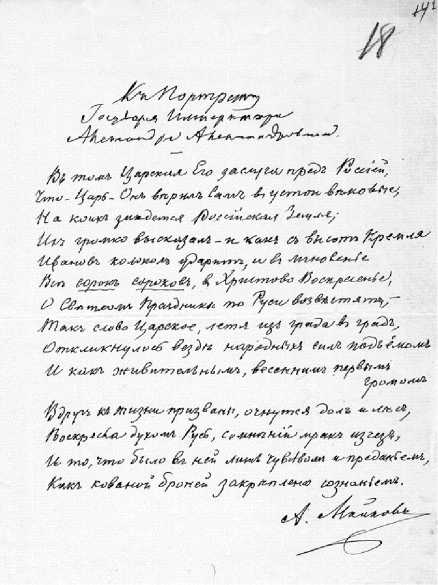 141
18
Къ Портрету
Государя Императора
Александра Александровича.
Въ томъ Царская Его заслуга предъ Россіей,
Что – Царь – Онъ вѣрилъ Самъ въ устои вѣковые,
На коихъ зиждется Россійская Земля,
Ихъ громко высказалъ – и какъ съ высотъ Кремля
Ивановъ колоколъ ударитъ, и въ мгновенье
Всѣ сорокъ сороковъ, въ Христово Воскресенье,
О Святомъ Праздникѣ по Руси возвѣстятъ, –
Такъ слово Царское, летя изъ града въ градъ,
Откликнулось вездѣ народныхъ силъ подъемомъ
И какъ живительнымъ, весеннимъ первымъ
громомъ
Вдругъ къ жизни призваны, очнутся долъ и лѣсъ,
Воскресла духомъ Русь, сомнѣній мракъ изчезъ,
И то, что было въ ней лишь чувствомъ и преданьемъ,
Какъ кованой броней закрѣплено сознаньемъ.
А. Майковъ